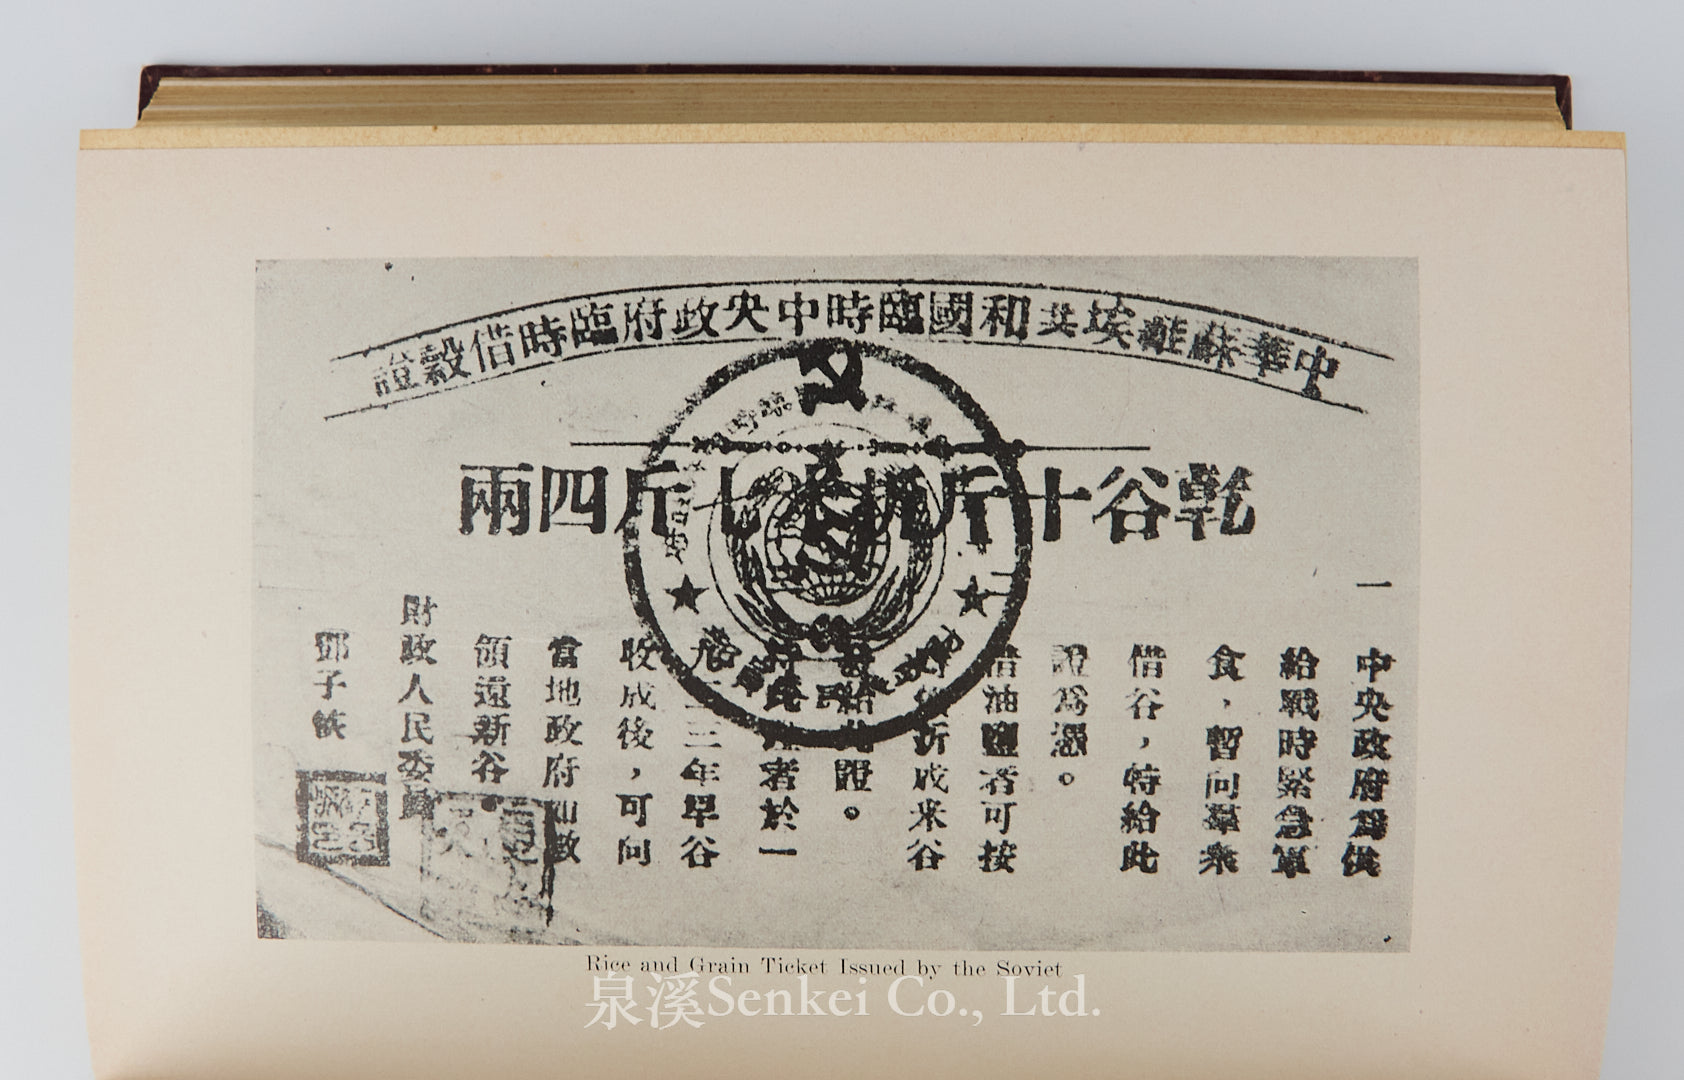 中華蘇維埃共和國臨時中央政府臨時借穀證
乾谷十斤折米七斤四兩
一
中央政府爲供
給戰時緊急軍
食，暫向羣衆
借谷，特給此
證爲憑。
借油鹽者可按
折成米谷
給此證。
者於一
九三三年早谷
收成後，可向
當地政府如數
領還新谷。
財政人民委員
鄧子恢
Rice and Grain Ticket Issued by the Soviet
泉溪Senkei Co., Ltd.